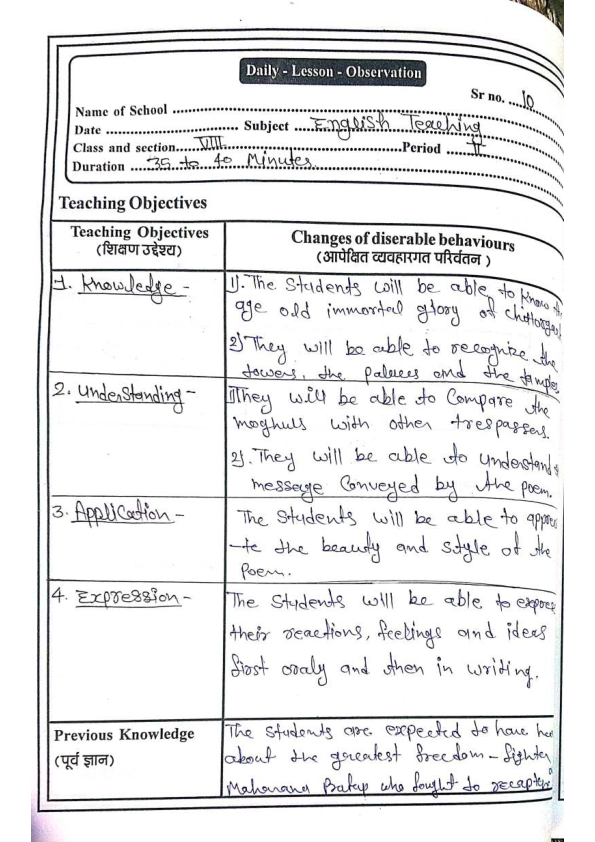 Daily - Lesson - Observation
Sr no. ....10
Name of School ..............................
Date .............................. Subject ....English Teaching
Class and section....VIII..............................Period ....II
Duration ....35 to 40 Minutes..............................
Teaching Objectives
Teaching Objectives
(शिक्षण उद्देश्य)
Changes of diserable behaviours
(आपेक्षित व्यवहारगत परिवंतन )
1. Knowledge -
1). The Students will be able to know
age old immortal glory of
2) They will be able to recognize the
towers, the palaces and the
2. Understanding -
1) They will be able to Compare the
moghuls with other trespassers.
2). They will be able to understand
message Conveyed by the poem.
3. Application -
The Students will be able to
the beauty and style of the
Poem.
4. Expression -
The Students will be able to
their reactions, feelings and ideas
first oraly and then in writing.
Previous Knowledge
(पूर्व ज्ञान)
The Students are expected to have
about the greatest freedom - fighter
who fought to